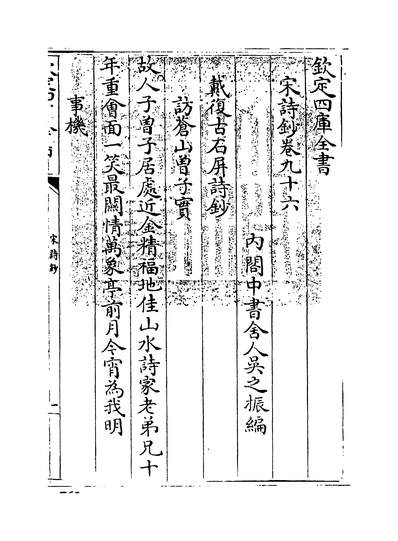 欽定四庫全書
宋詩鈔卷九十六
內閣中書舍人吳之振編
戴復古石屏詩鈔
訪蒼山曽子實
故人子曽子居處近金精福地佳山水詩家老弟兄十
年重會面一笑最闗情萬象亭前月今宵為我明
事機
宋詩鈔